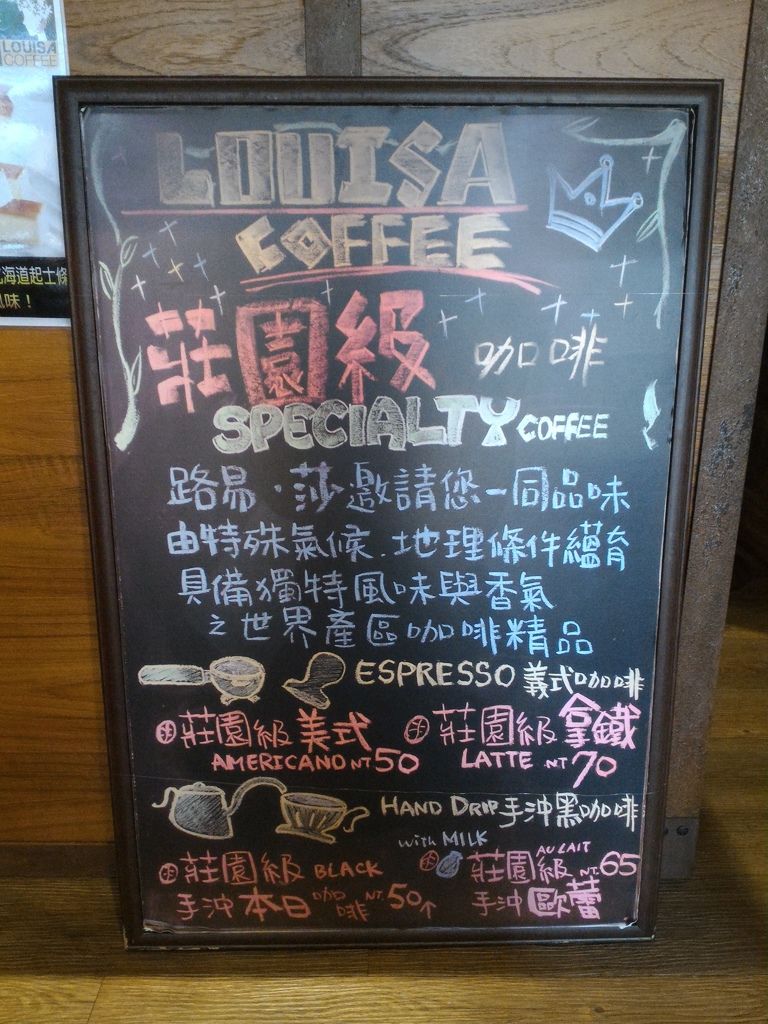 LOUISA
COFFEE
海道起士條
味！
LOUISA
COFFEE
莊園級 咖啡
SPECIALTY COFFEE
路易·莎邀請您一同品味
由特殊氣候.地理條件蘊育
具備獨特風味與香氣
之世界產區咖啡精品
ESPRESSO 義式咖啡
莊園級美式
AMERICANO NT 50
莊園級拿鐵
LATTE NT 70
HAND DRIP 手沖黑咖啡
莊園級 BLACK
手沖本日咖啡 NT.50↑
with MILK
莊園級 AU LAIT NT.65
手沖歐蕾